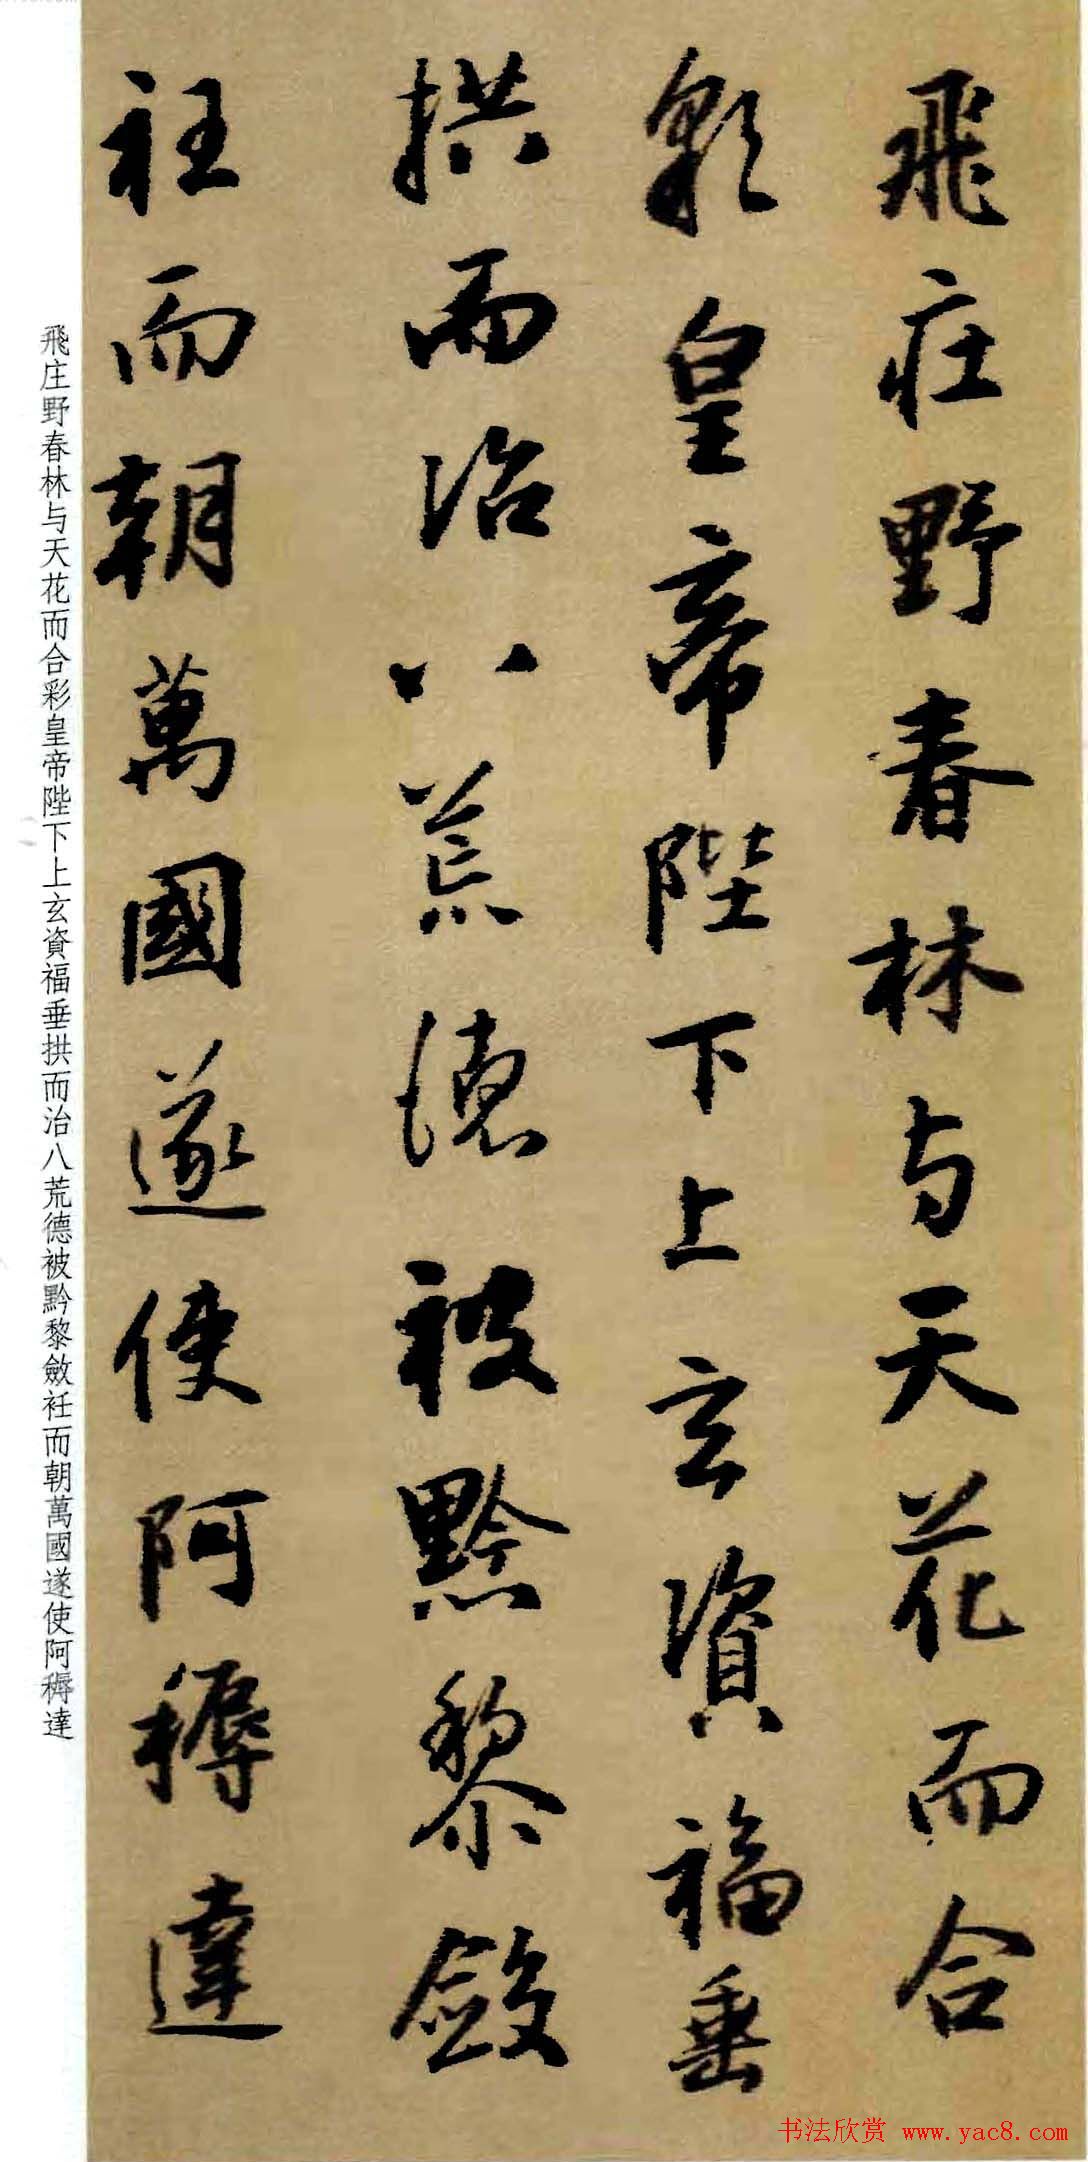 飛庄野春林与天花而合
彩皇帝陛下上玄資福垂
拱而治八荒德被黔黎斂
衽而朝萬國遂使阿耨達
飛庄野春林与天花而合彩皇帝陛下上玄資福垂拱而治八荒德被黔黎斂衽而朝萬國遂使阿耨達
书法欣赏 www.yac8.com